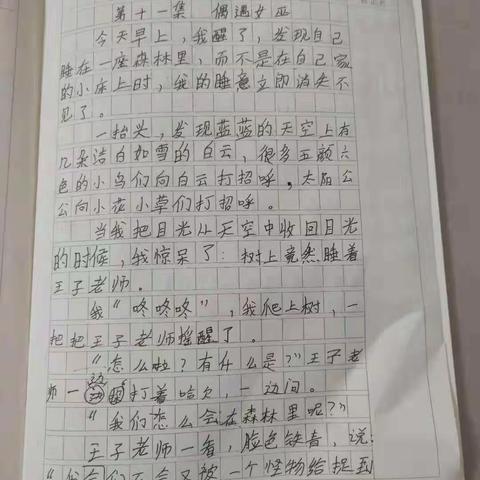 第十一集 偶遇女巫
今天早上，我醒了，发现自己
睡在一座森林里，而不是在自己家
的小床上时，我的睡意立即消失不
见了。
一抬头，发现蓝蓝的天空上有
几朵洁白如雪的白云，很多五颜六
色的小鸟们向白云打招呼，太阳公
公向小花小草们打招呼。
当我把目光从天空中收回目光
的时候，我惊呆了：树上竟然睡着
王子老师。
我“咚咚咚”，我爬上树，一
把把王子老师摇醒了。
“怎么啦？有什么是？”王子老
师一边打着哈欠，一边问。
“我们怎么会在森林里呢？”
王子老师一看，脸色铁青，说：
“我们不会又被一个怪物给捉到